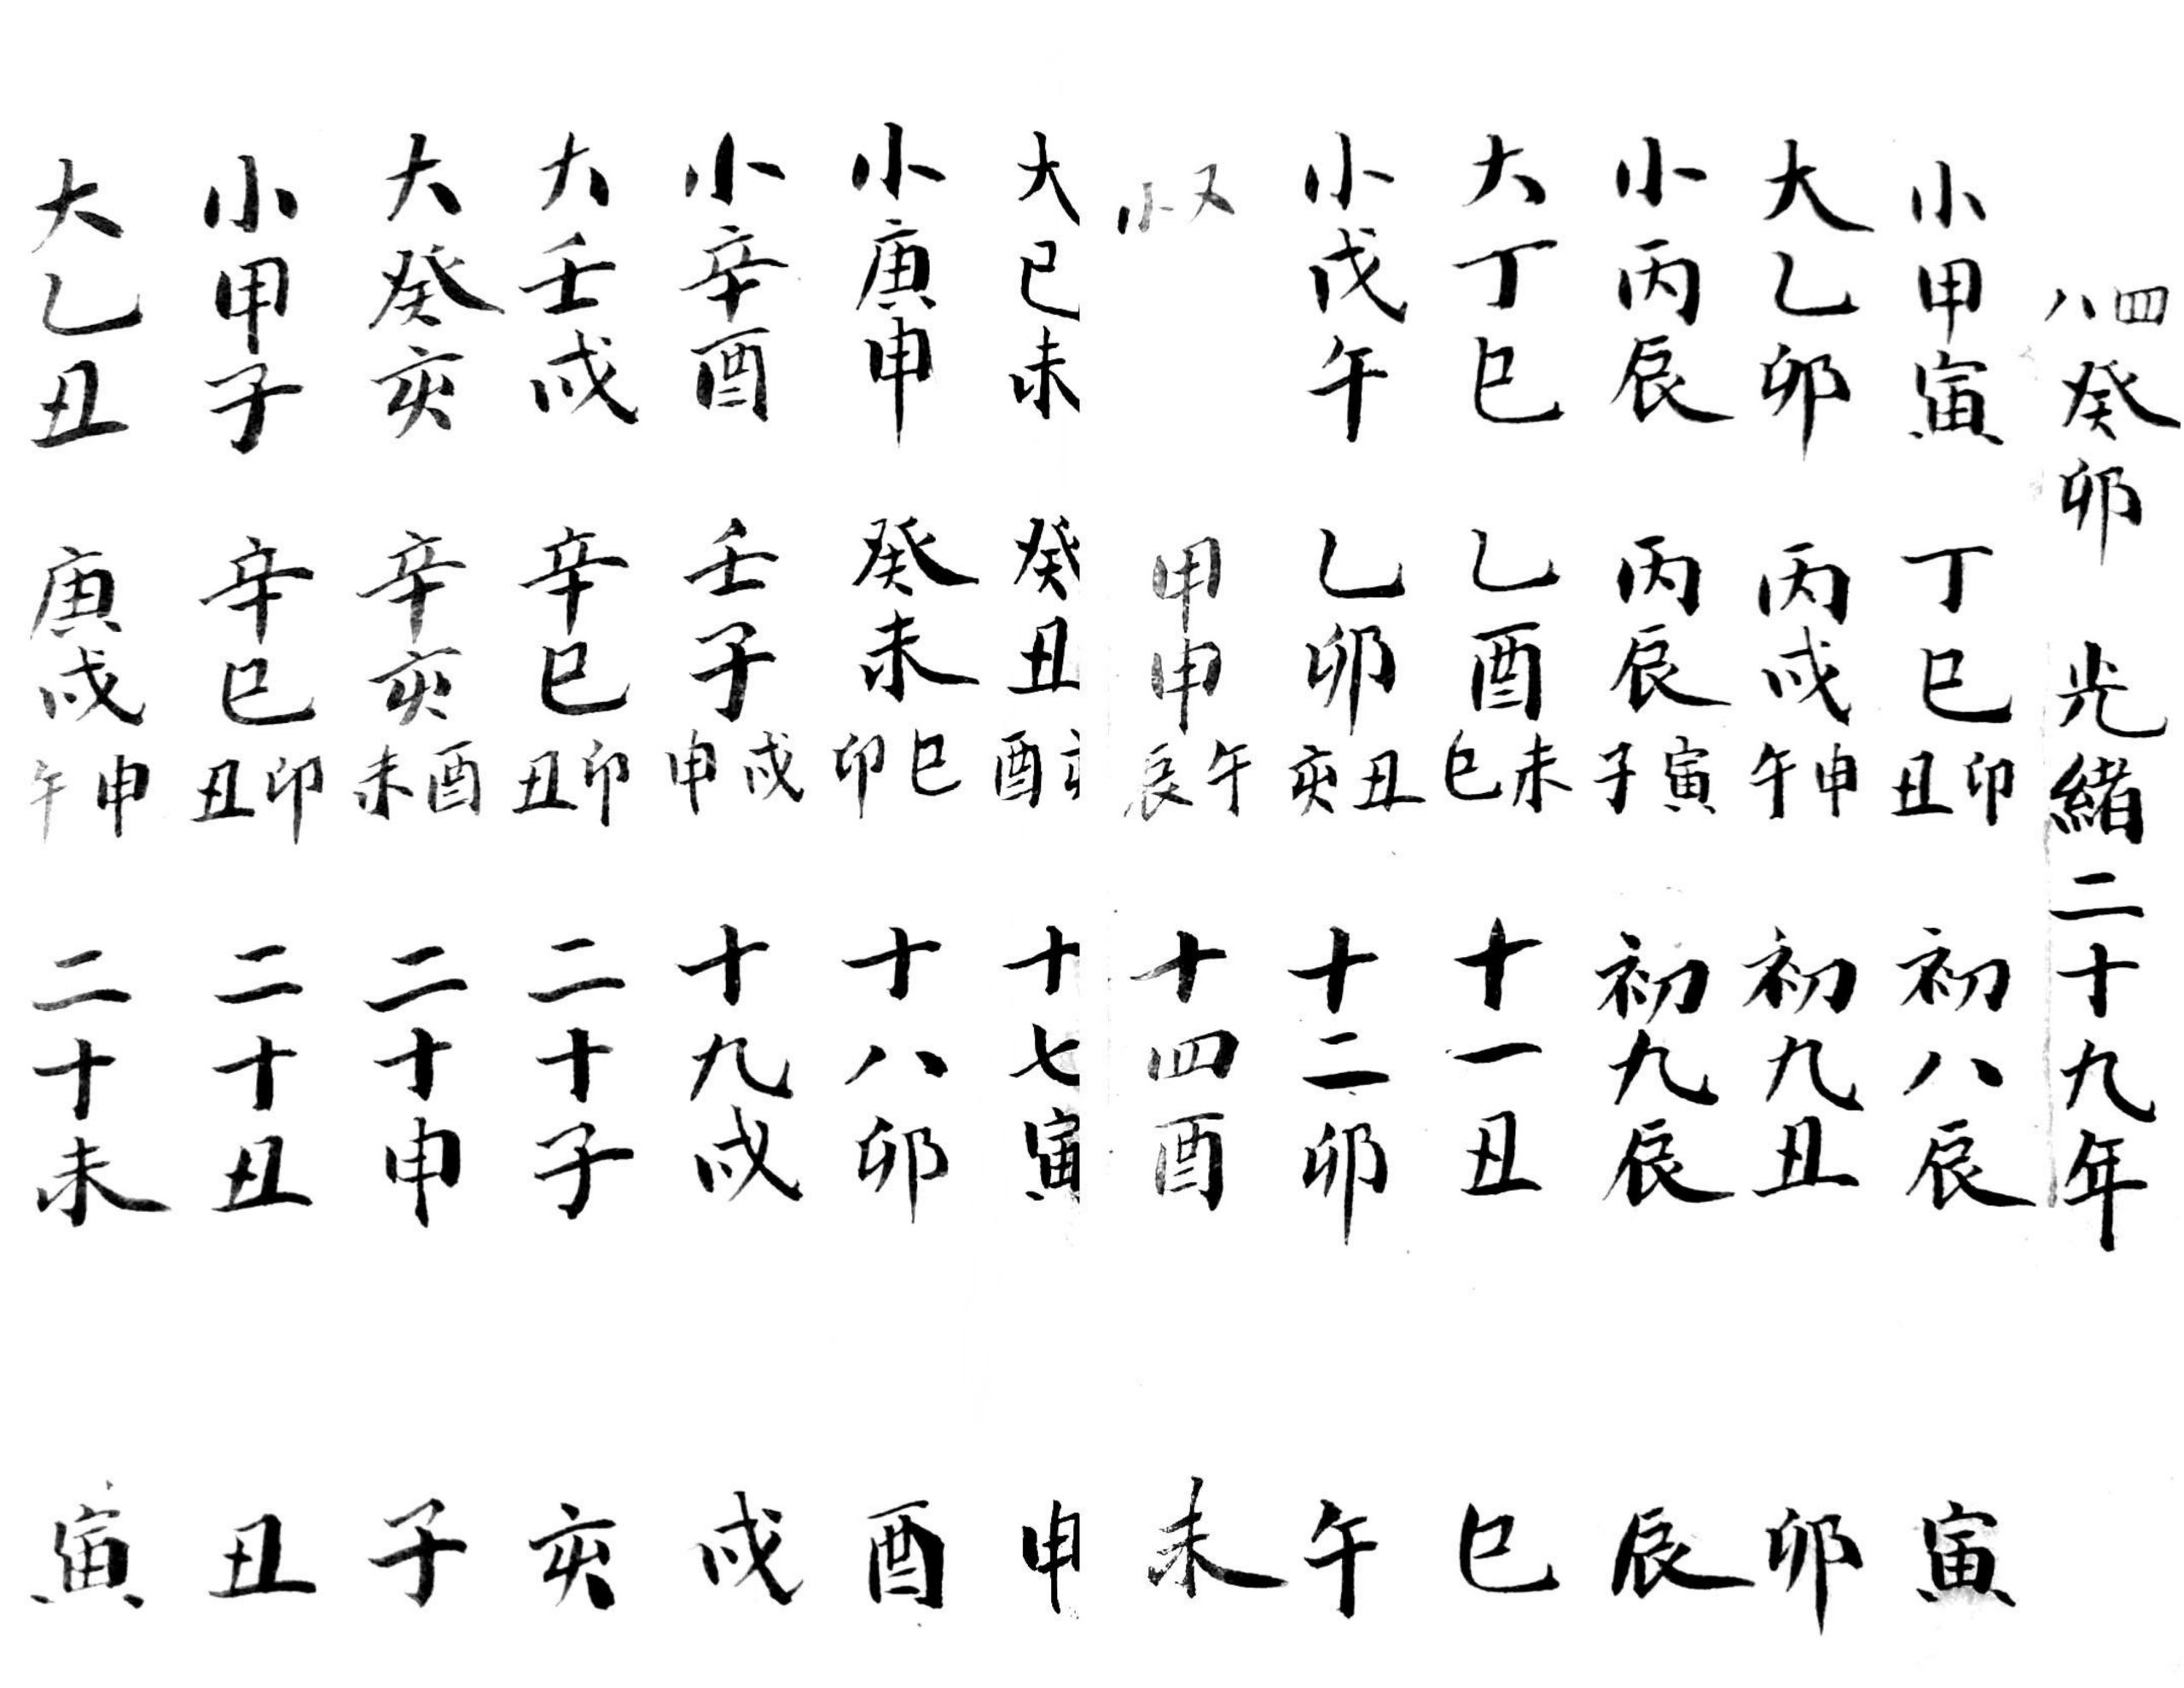 四八癸卯 光緒二十九年
小甲寅 丁巳丑卯 初八辰 寅
大乙卯 丙戌午申 初九丑 卯
小丙辰 丙辰子寅 初九辰 辰
大丁巳 乙酉巳未 十一丑 巳
小戊午 乙卯亥丑 十二卯 午
又小 甲申辰午 十四酉 未
大已未 癸丑酉 十七寅 申
小庚申 癸未卯巳 十八卯 酉
小辛酉 壬子申戌 十九戌 戌
大壬戌 辛巳丑卯 二十子 亥
大癸亥 辛亥未酉 二十申 子
小甲子 辛巳丑卯 二十丑 丑
大乙丑 庚戌午申 二十未 寅